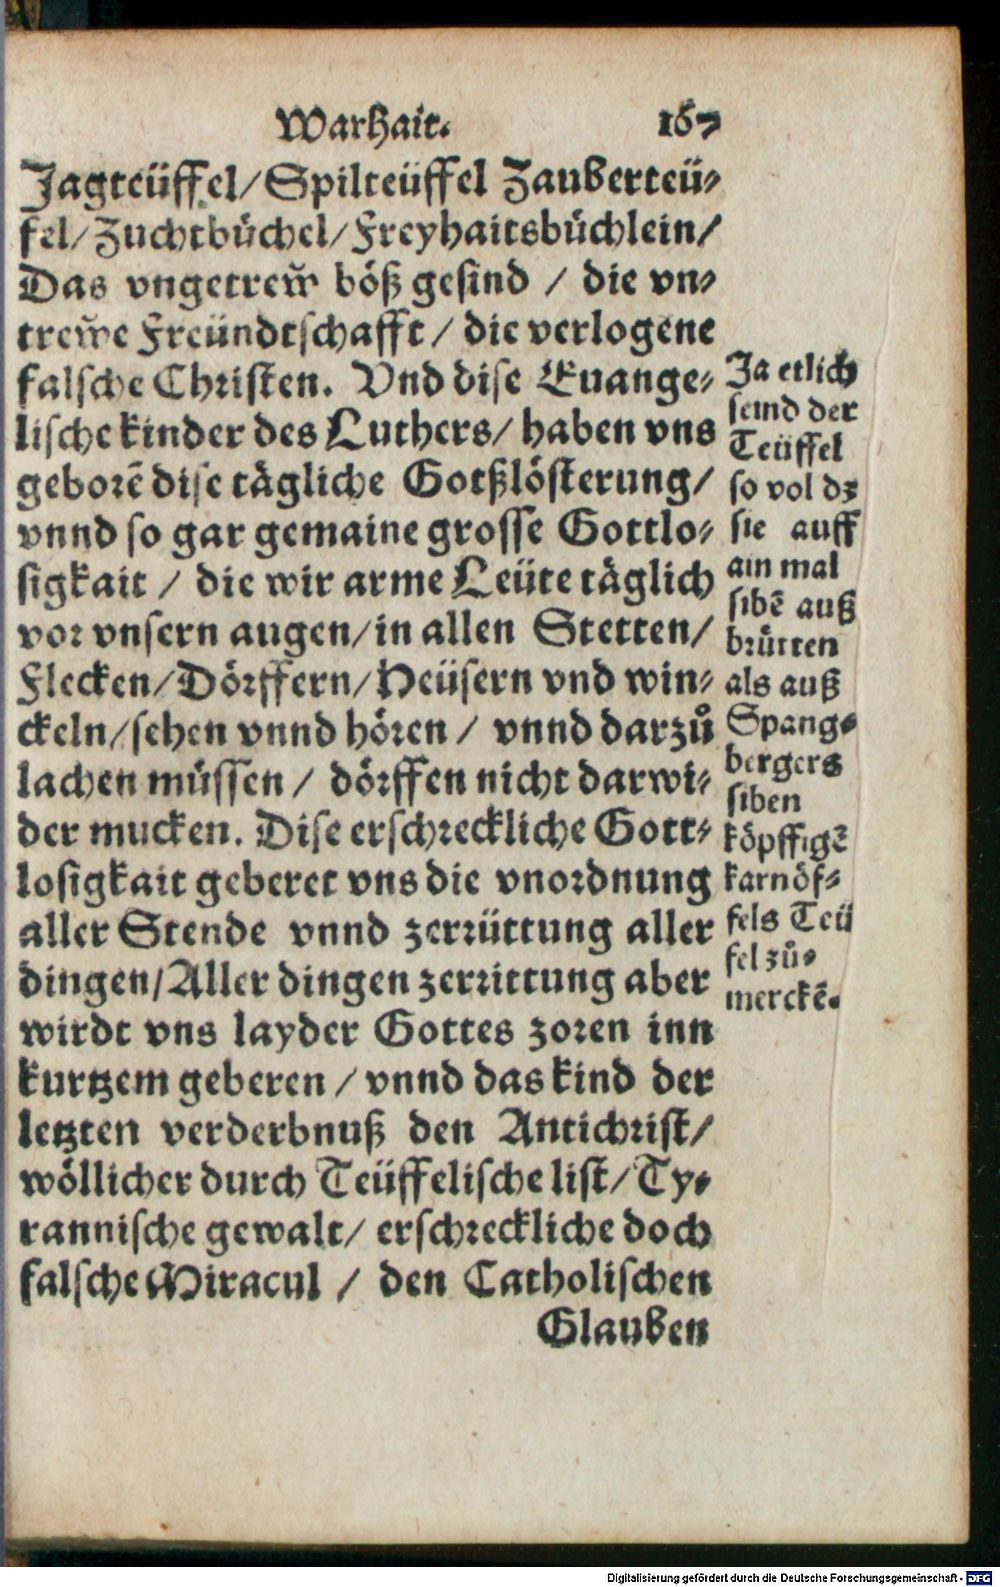 Warhait. 167
Jagteüffel/ Spilteüffel Zauberteü⸗
fel/ Zuchtbüchel/ Freyhaitsbüchlein/
Das vngetrew böß gesind / die vn⸗
trewe Freündtschafft / die verlogene
falsche Christen. Vnd dise Euange⸗
lische kinder des Luthers/ haben vns
geborẽ dise tägliche Gotßlösterung/
vnnd so gar gemaine grosse Gottlo⸗
sigkait / die wir arme Leüte täglich
vor vnsern augen/ in allen Stetten/
Flecken/ Dörffern/ Heüsern vnd win⸗
ckeln/ sehen vnnd hören / vnnd darzů
lachen müssen / dörffen nicht darwi⸗
der mucken. Dise erschreckliche Gott⸗
losigkait geberet vns die vnordnung
aller Stende vnnd zerrüttung aller
dingen/ Aller dingen zerrittung aber
wirdt vns layder Gottes zoren inn
kurtzem geberen / vnnd das kind der
letzten verderbnuß den Antichrist/
wöllicher durch Teüffelische list/ Ty⸗
rannische gewalt/ erschreckliche doch
falsche Miracul / den Catholischen
Glauben
Ja etlich
seind der
Teüffel
so vol dz
sie auff
ain mal
sibẽ auß
brütten
als auß
Spang⸗
bergers
siben
köpffigẽ
karnöf⸗
fels Teü
fel zů⸗
merckẽ.
Digitalisierung gefördert durch die Deutsche Forschungsgemeinschaft - DFG